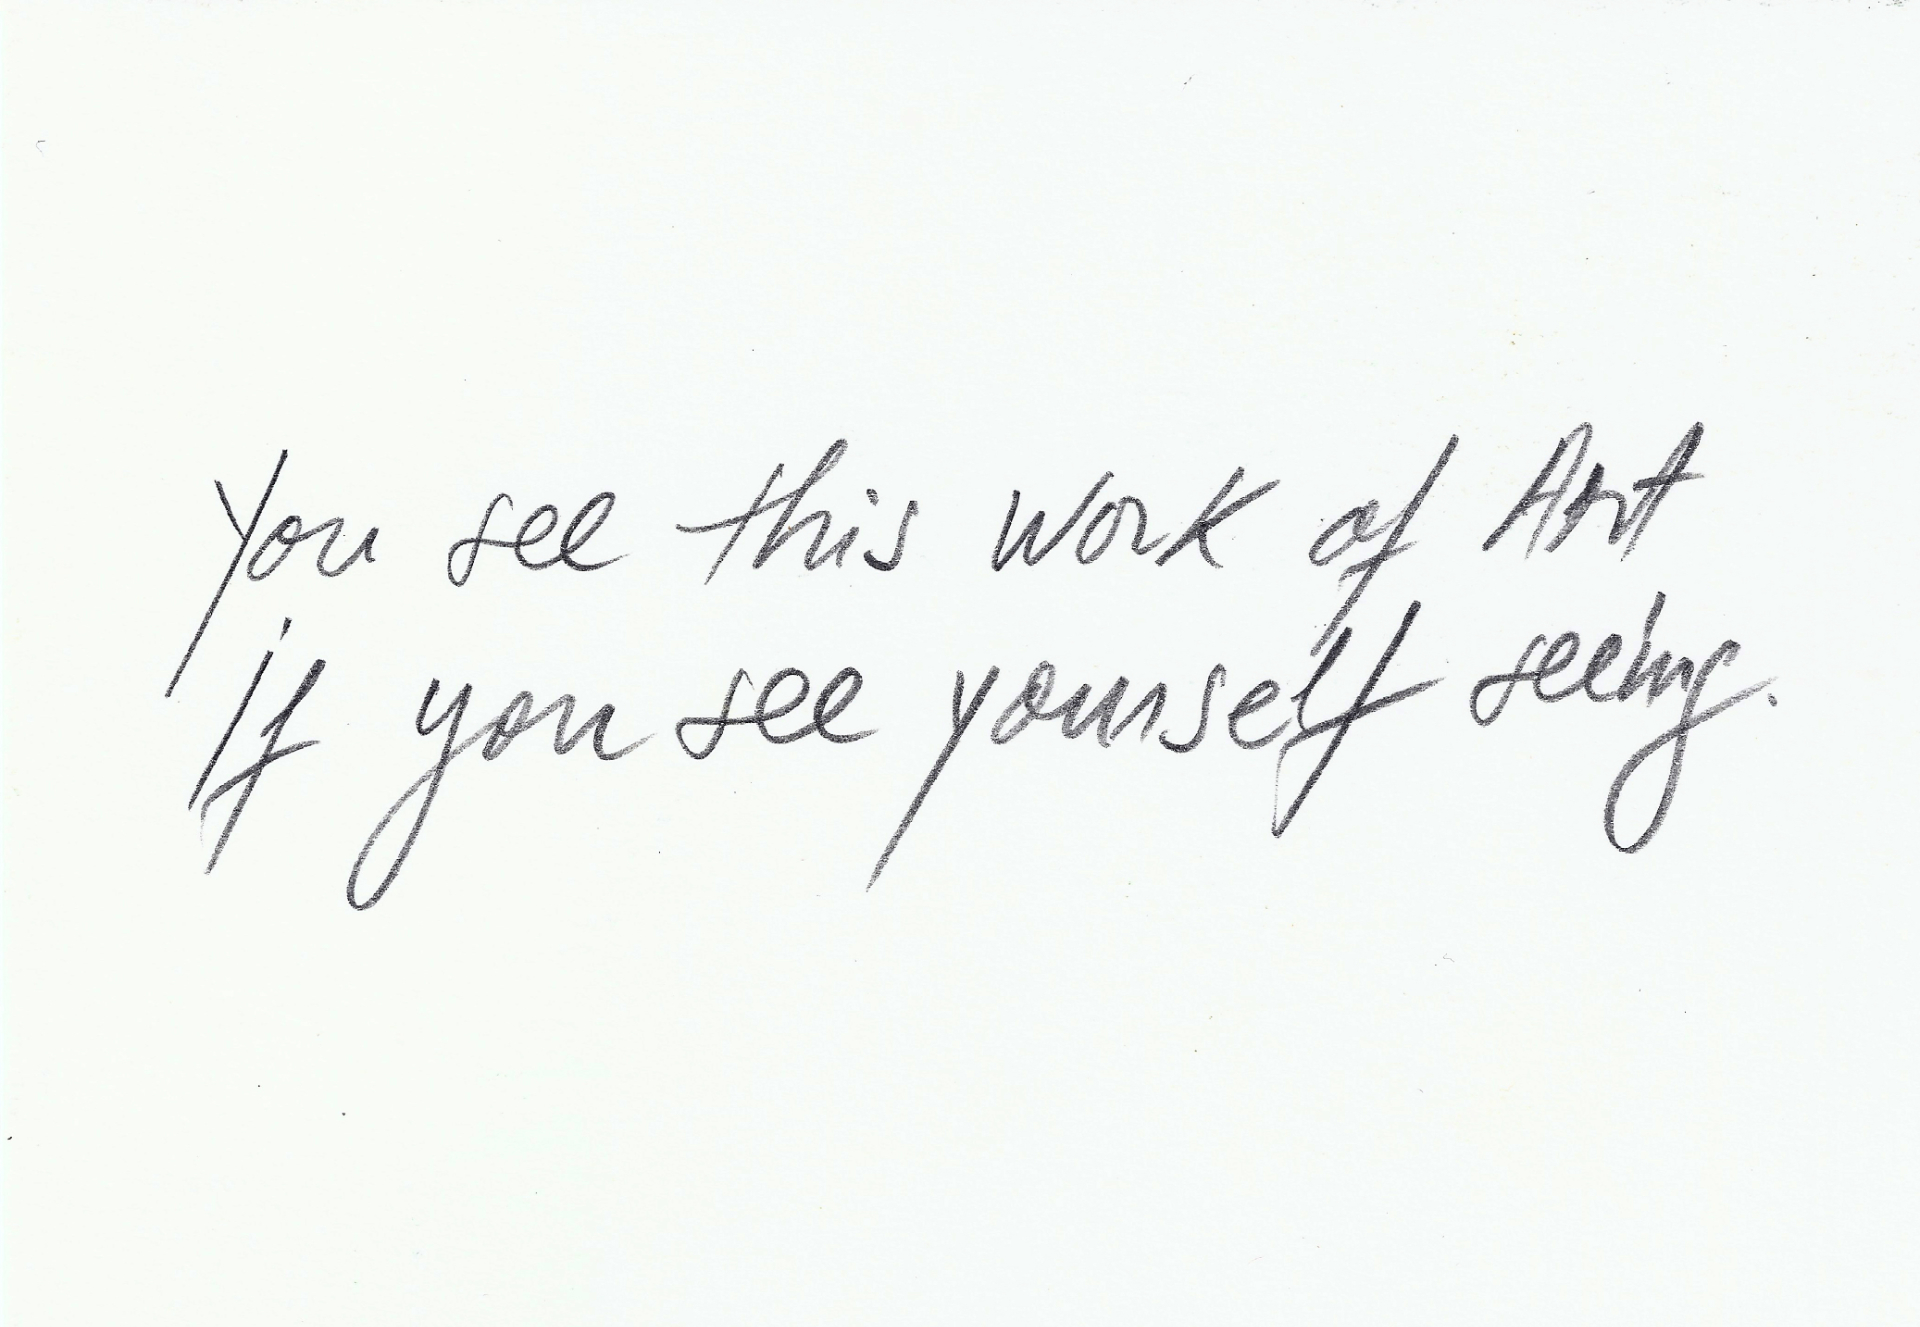 You see this work of Art
if you see yourself seeing.